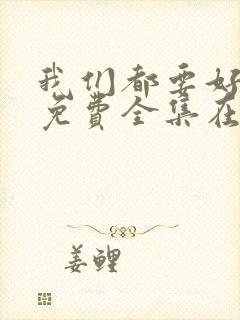 我们都要好
免费全集在
姜鲤